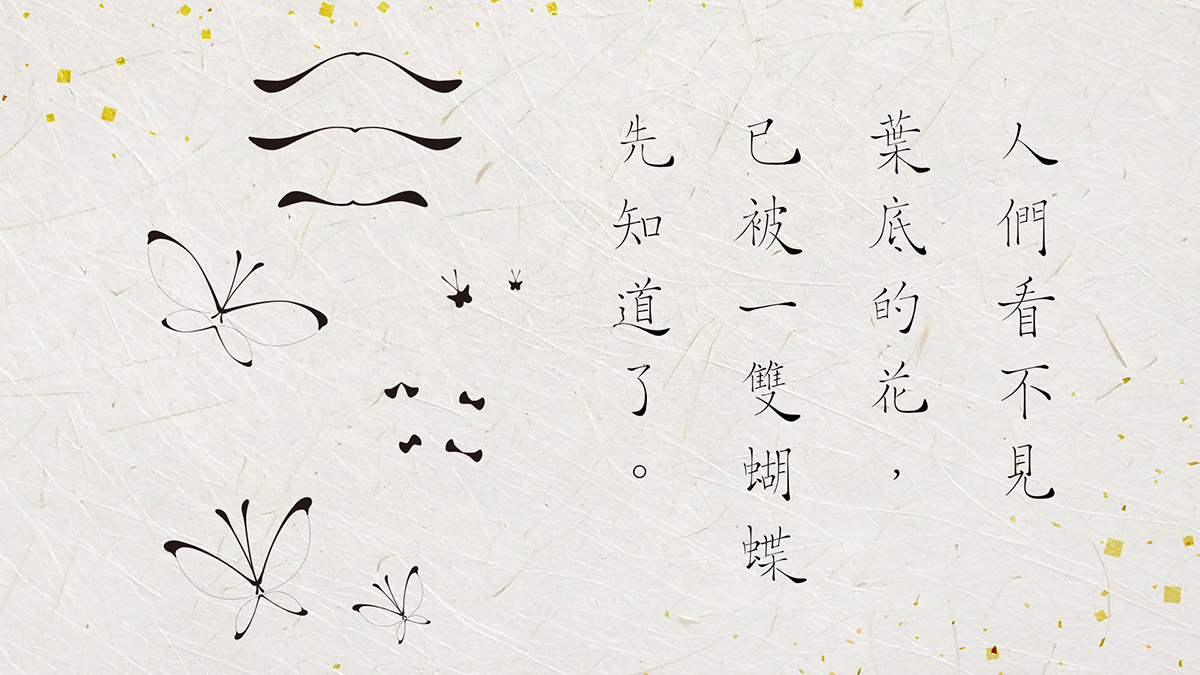 人們看不見
葉底的花，
已被一雙蝴蝶
先知道了。